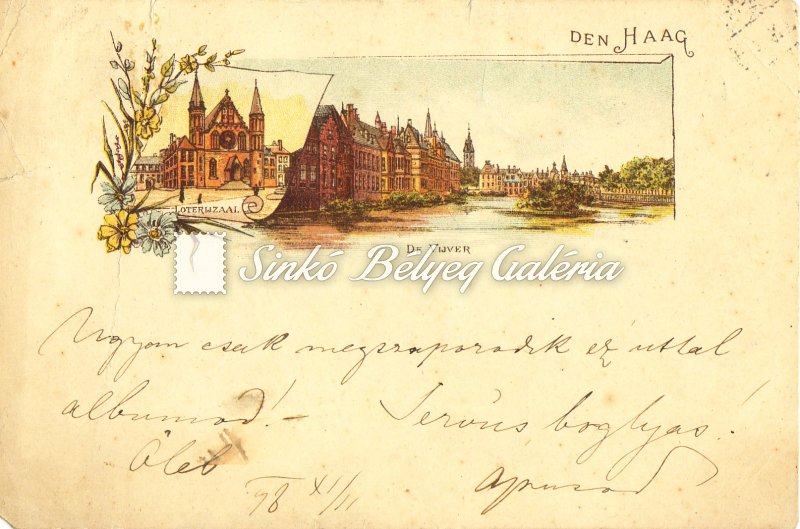 DEN HAAG
LOTERIJZAAL
DE VIJVER
Sinkó Bélyeg Galéria
Ugyan csak megszaporodik ez uttal
albumod! - Servus, boglyas!
Ölel
98 XI/11 Apusod